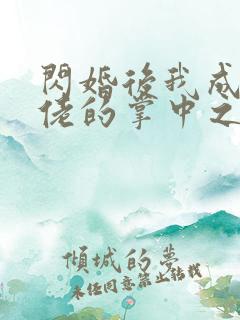 閃婚後我成
佬的掌中之
傾城的夢
未經同意禁止轉載